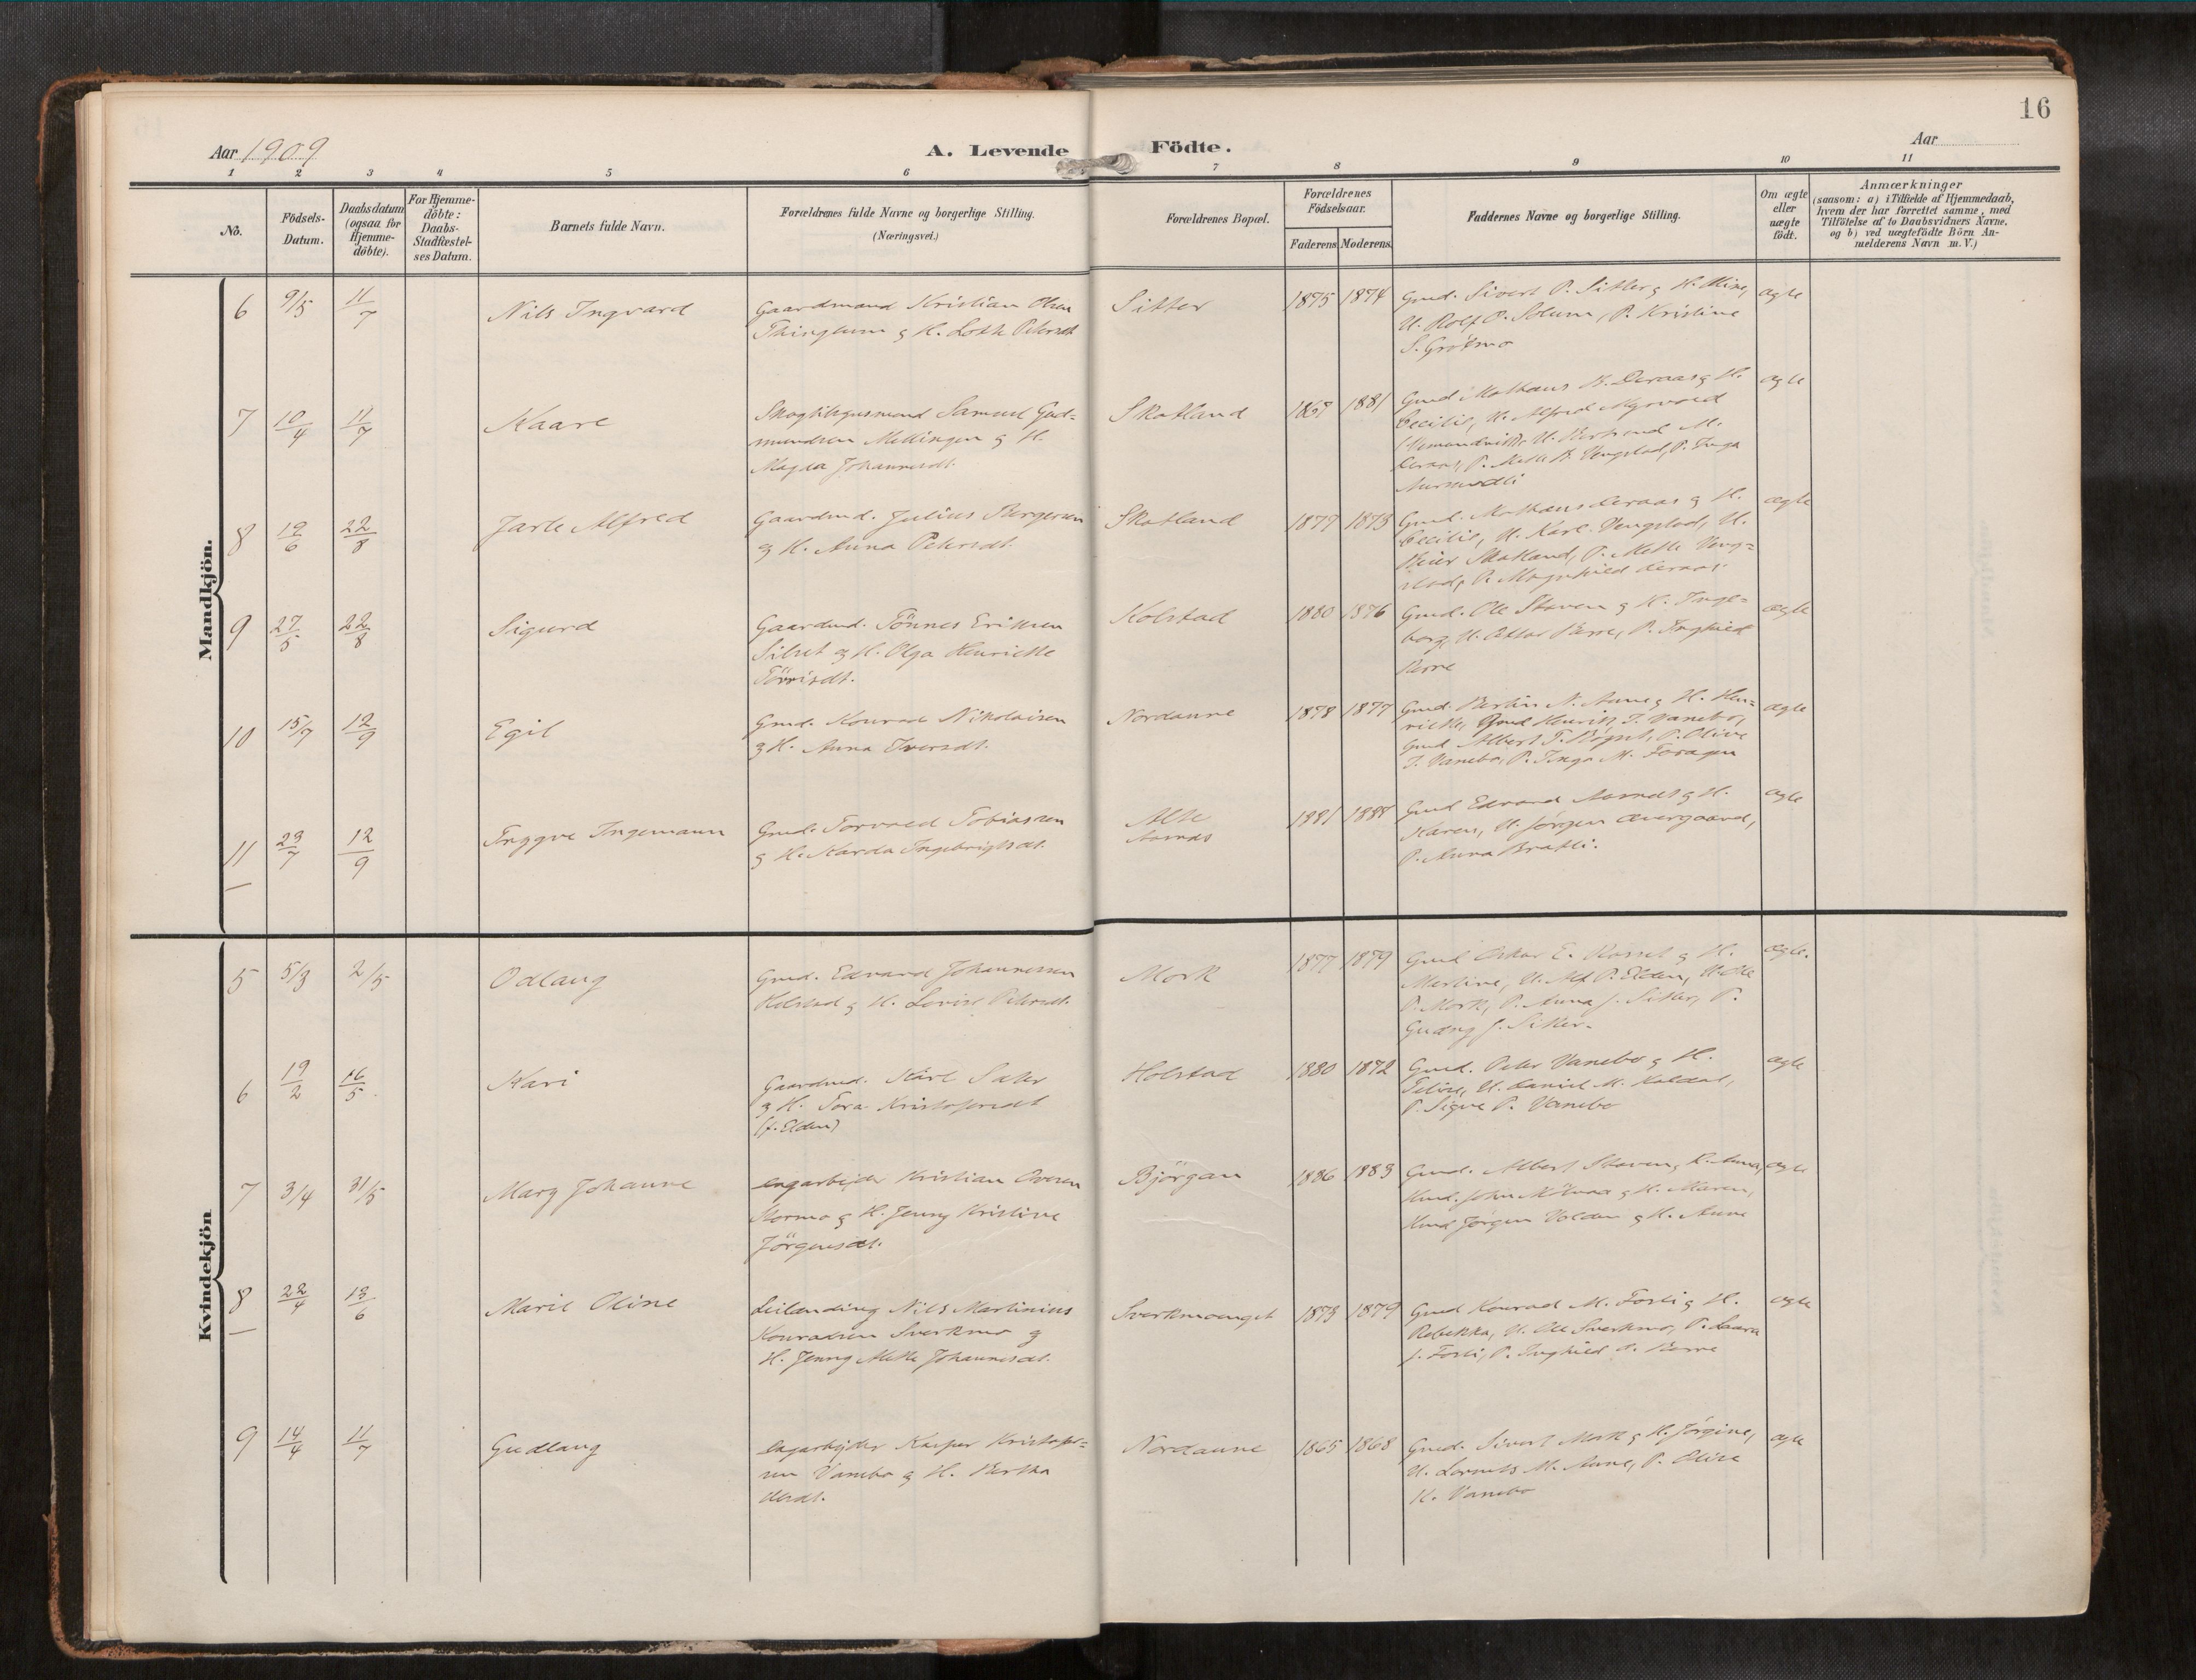 16
Aar 1909
A. Levende Födte.
Aar
1 2 3 4 5 6 7 8 9 10 11
No.
Födsels-Datum.
Daabsdatum (ogsaa for Hjemme-döbte).
For Hjemme-döbte: Daabs-Stadfæstel-ses Datum.
Barnets fulde Navn.
Forældrenes fulde Navne og borgerlige Stilling.
(Næringsvei.)
Forældrenes Bopæl.
Forældrenes Födselsaar.
Faderens. Moderens.
Faddernes Navne og borgerlige Stilling.
Om ægte eller uægte födt.
Anmærkninger
(saasom: a) i Tilfælde af Hjemmedaab,
hvem der har forrettet samme, med
Tilföielse af to Daabsvidners Navne.
og b) ved uægtefödte Börn An-
melderens Navn m. V.)
Mandkjön.
6 9/5 11/7 Nils Ingvard
Gaardmand Kristian Olsen
& H. Petersdt.
Sitter 1875 1874
Gmd. Sivert P. Sitter & H. Mine,
U. Rolf O. Solum, P. Kristine
S. Grötmo
ægte
7 10/4 11/7 Kaare
Samuel Gud-
mundsen Mellingen & H.
Magda Johannesdt.
Skatland 1869 1881
Gmd Mathæus B. Deraas & H.
Cecilie, U. Alfred Myrvold
U. Bertrand M.
Deraas, P. Mette B. Vengstad, P. Inga
ægte
8 12/6 22/8 Jarle Alfred
Gaardmd. Julius Bergersen
& H. Anna Petersdt.
Skatland 1877 1873
Gmd. Mathæus Deraas & H.
Cecilie, U. Karl Vengstad, U.
Skatland, P. Mette Veng-
stad, P. Magnhild Deraas.
ægte
9 27/5 22/8 Sigurd
Gaardmd. Tönnes Eriksen
& H. Olga Henriette
Kolstad 1880 1876
Gmd. Ole Staven & H. Inge-
borg, U. Ottar Berre, P. Inghild
Berre
ægte
10 15/7 12/9 Egil
Gmd. Konrad Nikolaisen
& H. Anna Iversdt.
Nordaune 1878 1877
Gmd. Bertin N. Aune & H. Hen-
riette, Gmd Henrik J. Vanebo,
Gmd Albert T. P. Olive
J. Vanebo, P. Inga M.
ægte
11 23/7 12/9 Tryggve Ingemann
Gmd. Torvald Tobiassen
& H. Karda Ingebrigtsdt.
Aarnds 1881 1888
Gmd Edvard Aarnds & H.
Karen, U. Jørgen Overgaard,
P. Anna Bratli.
ægte
Kvindekjön
5 5/3 2/5 Odlaug
Gmd. Edvard Johannessen
Kolstad & H. Lovise Petersdt.
Mork 1877 1879
Gmd Oskar E. Rosset & H.
Martine, U. Alf P. Elden, U. Ole
P. Mork, P. Anna J. Sitter, P.
Gudny J. Sitter.
ægte.
6 19/2 16/5 Kari
Gaardmd. Karl Sater
& H. Tora Kristofersdt
(f. Elden)
Holstad 1880 1872
Gmd. Peter Vanebo & H.
U. Daniel M. Kaldal,
P. Signe P. Vanebo
ægte
7 3/4 31/5 Mary Johanne
Lagarbejder Kristian Ovesen
Stormo & H. Jenny Kristine
Jörgensdt.
Björgan 1886 1883
Gmd. Albert Staven, K. Anna,
Hmd. John & H. Maren,
Hmd Jørgen Volden & H. Anne
ægte
8 22/4 13/6 Marie Oline
Leilending Nils Martinius
Konradsen Sverkmo &
H. Jenny Mette Johannesdt.
Sverkmoenget 1873 1879
Gmd Konrad M. Fosli & H.
Rebekka, U. Ole Sverkmo, P. Laura
J. Fosli, P. Inghild P. Berre
ægte
9 14/4 11/7 Gudlaug
Lagarbejder Kasper Kristofer-
sen Vanebo & H. Bertha
Olesdt.
Nordaune 1865 1868
Gmd. Sivert Mork & H. Jørgine,
U. Lornts M. Aune, P. Elise
K. Vanebo
ægte